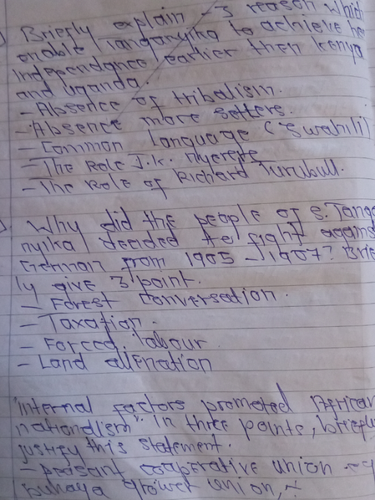 Briefly explain 3 reason which
enable Tanganyika to achieve her
independance earlier then kenya
and uganda.
- Absence of tribalism.
- Absence more setters.
- Common language (Swahili)
- The Role J.k. Nyerere
- The Role of Richard Turnbull.
Why did the people of S. Tanga
nyika decided to fight agains
German from 1905 - 1907? Brie
ly give 3 point.
- Forest conversation.
- Taxation.
- Forced labour
- Land alienation
"Internal factors promoted African
nationalism" in three points, briefly
justify this statement.
- peasant cooperative union
buhaya grower union,